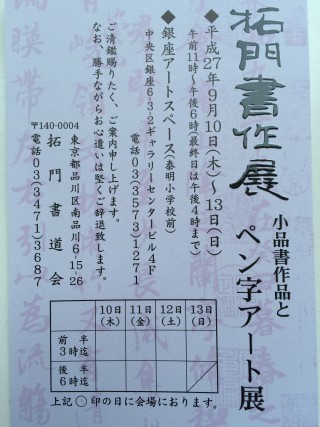 拓門書作展
小品書作品と
ペン字アート展
◆平成27年9月10日(木)〜13日(日)
午前11時〜午後6時(最終日は午後4時まで)
◆銀座アートスペース(泰明小学校前)
中央区銀座6-3-2ギャラリーセンタービル4F
電話03(3573)1271
ご清鑑賜りたく、ご案内申し上げます。
なお、勝手ながらお心遣いは堅くご辞退致します。
〒140-0004
東京都品川区南品川6-15-26
拓門書道会
電話03(3471)3687
10日(木) 11日(金) 12日(土) 13日(日)
前半 3時迄
後半 6時迄
上記○印の日に会場におります。